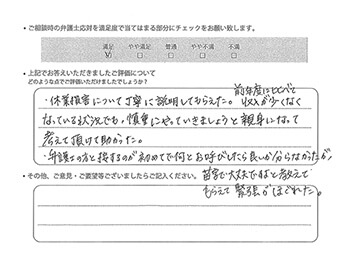 ・ご相談時の弁護士応対を満足度で当てはまる部分にチェックをお願い致します。
満足 やや満足 普通 やや不満 不満
・上記でお答えいただきましたご評価について
どのような点でご評価いただけましたでしょうか?
前年度に比べと
・休業損害について丁寧に説明してもらえた。収入が少なく
なっている状況でも、慎重にやっていきましょうと親身になって
考えて頂けて助かった。
・弁護士の方と接するのが初めてで何とお呼びしたら良いか分らなかったが、
・その他、ご意見・ご要望等ございましたらご記入ください。
苗字で大丈夫ですと教えて
もらえて緊張がほぐれた。